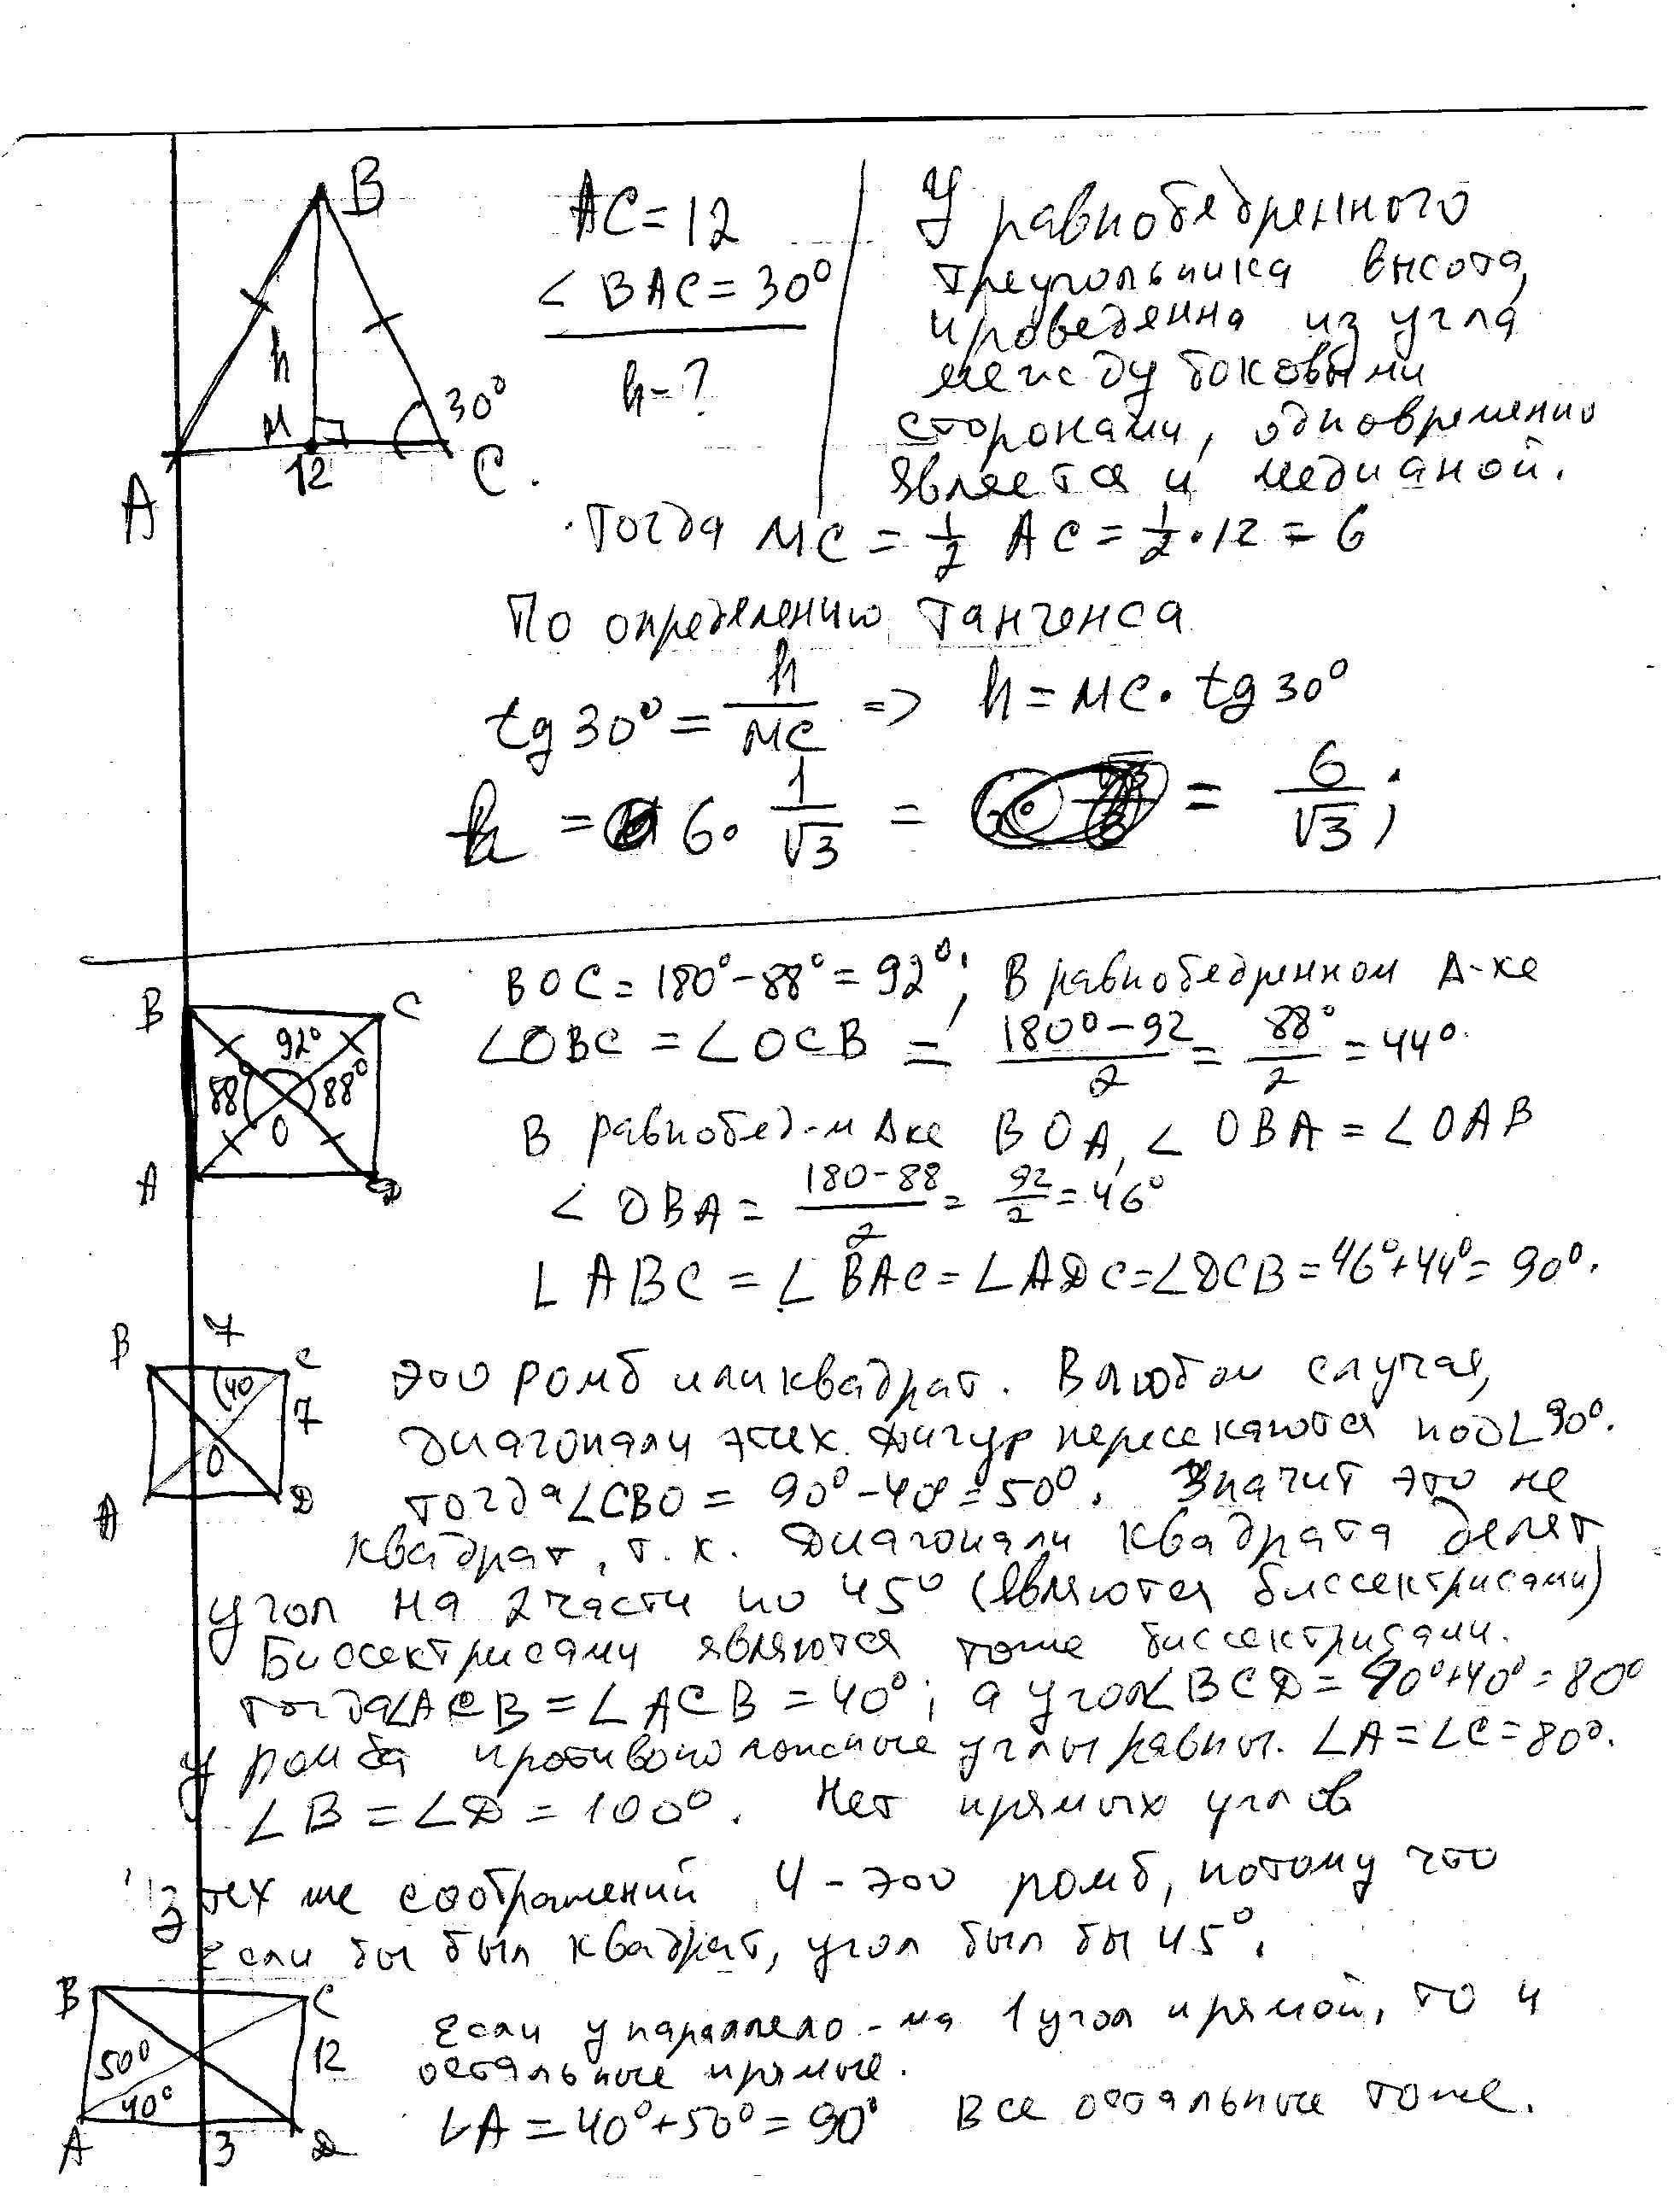 B
AC=12
∠ BAC = 30°
h-?
h
M
30°
12
A
C
У равнобедренного
треугольника высота,
проведенна из угла
между боковыми
сторонами, одновременно
является и медианой.
Тогда MC = 1/2 AC = 1/2 · 12 = 6
По определению тангенса
tg 30° = h/MC => h = MC · tg 30°
h = 6 · 1/√3 = = 6/√3;
B
C
92°
88°
88°
O
A
D
BOC = 180° - 88° = 92°; В равнобедренном Δ-ке
∠OBC = ∠OCB = (180° - 92)/2 = 88°/2 = 44°.
В равнобед-м Δке BOA, ∠ OBA = ∠OAB
∠ OBA = (180-88)/2 = 92/2 = 46°
∠ ABC = ∠ BAC = ∠ADC = ∠DCB = 46° + 44° = 90°.
7
B
C
40
7
O
A
D
Это ромб или квадрат. В любом случае,
диагонали этих фигур пересекаются под ∠90°.
тогда ∠CBO = 90° - 40° = 50°. Значит это не
квадрат, т. к. диагонали квадрата делят
угол на 2 части по 45° (являются биссектрисами)
Биссектрисами являются тоже биссектрисами.
тогда ∠ACB = ∠ACB = 40°; а угол ∠BCD = 40° + 40° = 80°
у ромба противоположные углы равны. ∠A = ∠C = 80°.
∠B = ∠D = 100°. Нет прямых углов
Из тех же соображений 4 - это ромб, потому что
если бы был квадрат, угол был бы 45°.
B
C
50°
40°
12
A
3
D
Если у параллело-ма 1 угол прямой, то и
остальные прямые.
∠A = 40° + 50° = 90° Все остальные тоже.